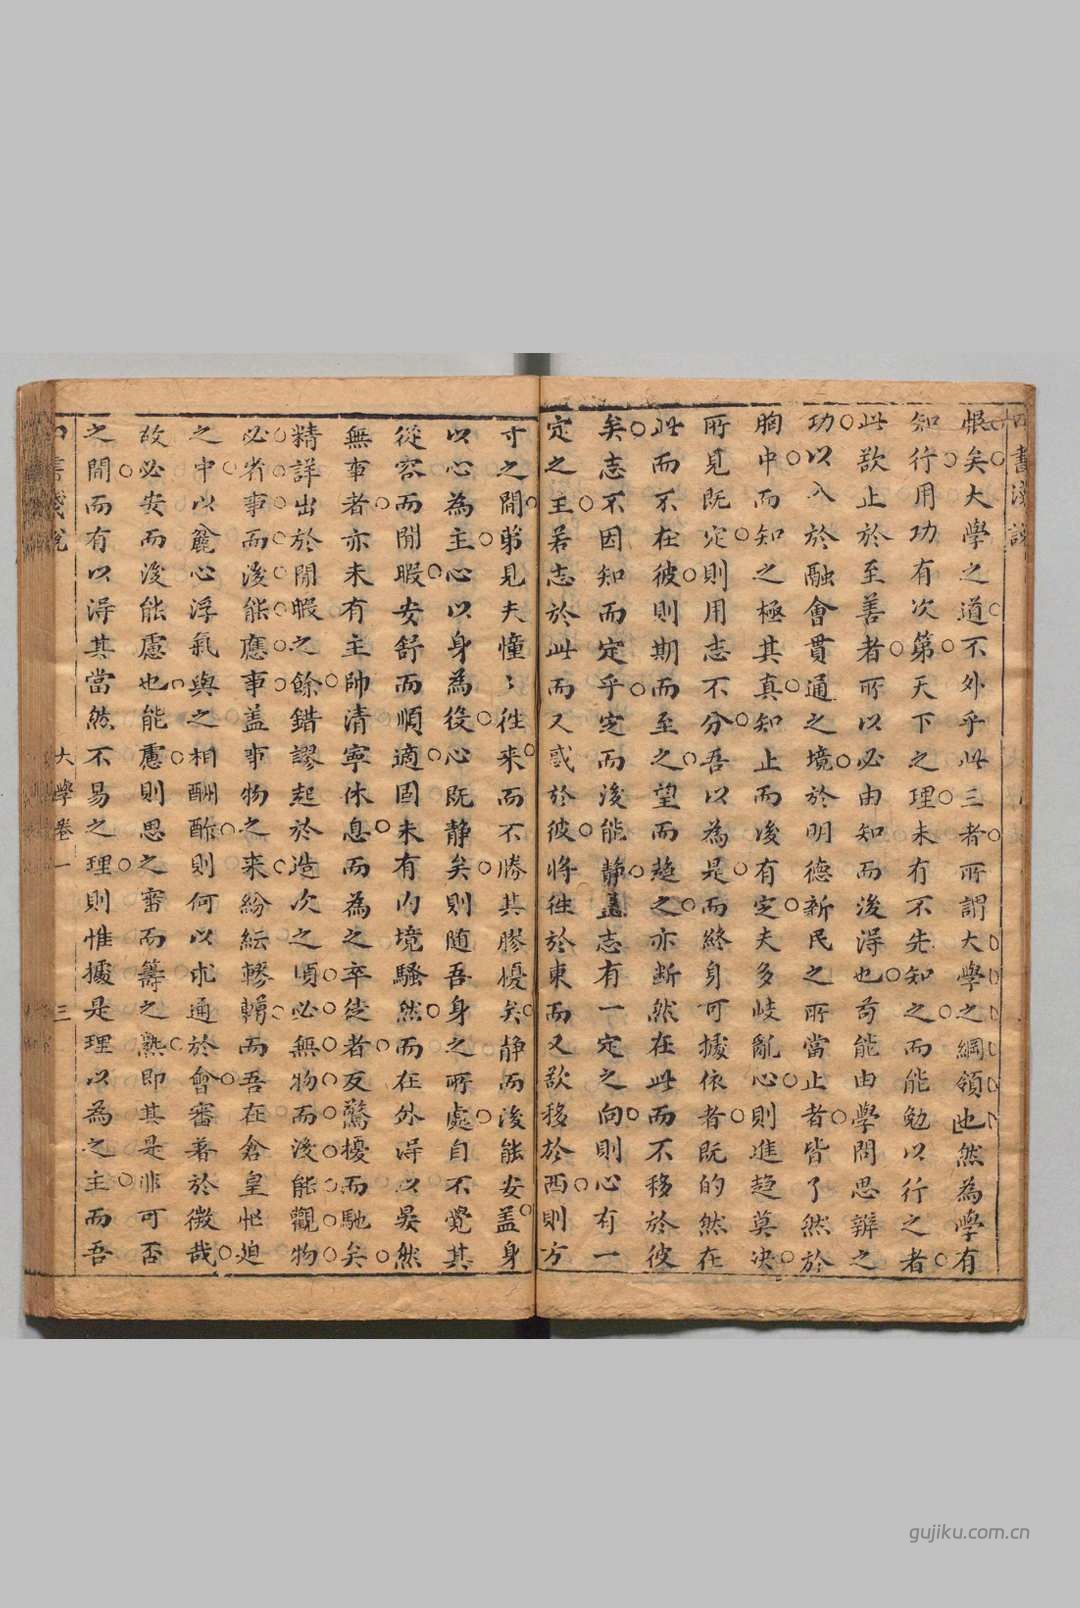 四書淺說
恨矣大學之道不外乎此三者所謂大學之綱領也然為學有
知行用功有次第天下之理未有不先知之而能勉以行之者
此欲止於至善者所以必由知而後得也苟能由學問思辨之
功以入於融會貫通之境於明德新民之所當止者皆了然於
胸中而知之極其真知止而後有定夫多岐亂心則進趨莫决
所見既定則用志不分吾以為是而終身可據依者既的然在
此而不在彼則期而至之望而趨之亦断然在此而不移於彼
矣志不因知而定乎定而後能静盖志有一定之向則心有一
定之主若志於此而又惑於彼將徃於東而又欲移於西則方
寸之間第見夫憧〻徃来而不勝其膠擾矣静而後能安盖身
以心為主心以身為役心既静矣則随吾身之所處自不覺其
從容而閒暇安舒而順適固未有内境騷然而在外得以晏然
無事者亦未有主帥清寧休息而為之卒徒者反驚擾而馳矣
精詳出於閒暇之餘錯謬起於造次之頃必無物而後能觀物
必省事而後能應事盖事物之来紛紜轇轕而吾在倉皇忙迫
之中以麄心浮氣與之相酬酢則何以求通於會審著於微哉
故必安而後能慮也能慮則思之審而籌之熟即其是非可否
之間而有以得其當然不易之理則惟據是理以為之主而吾
四書淺說
大學卷一
三
gujiku.com.cn